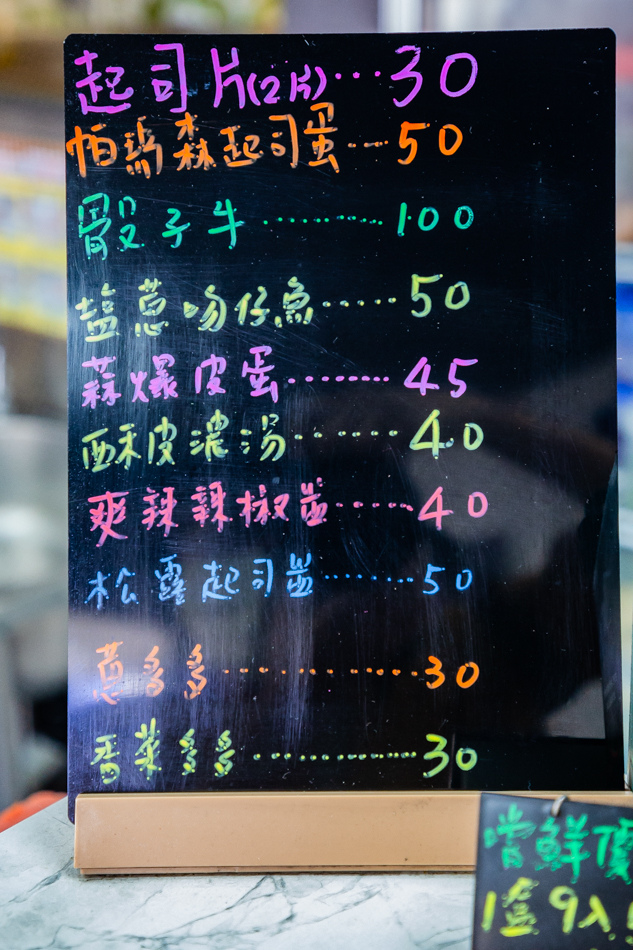 起司片(2片)···30
帕瑪森起司蛋···50
骰子牛··········100
塩蔥吻仔魚·····50
蒜爆皮蛋········45
酥皮濃湯·······40
爽辣辣椒盅······40
松露起司盅·······50
蔥多多············30
香菜多多············30
嚐鮮優
1盒9入